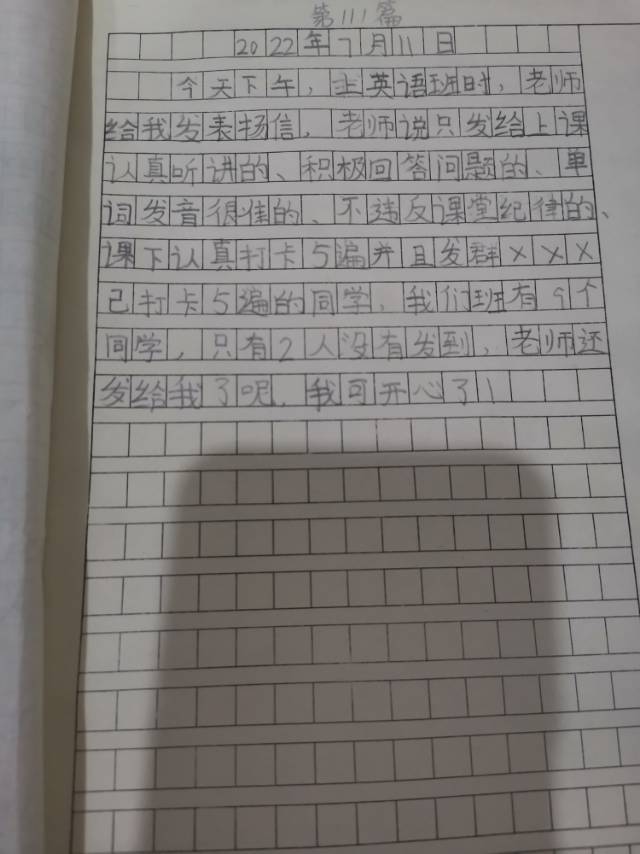 第111篇
2022年7月11日
今天下午，上英语班时，老师
给我发表扬信，老师说只发给上课
认真听讲的、积极回答问题的、单
词发音很准的、不违反课堂纪律的、
课下认真打卡5遍并且发群×××
已打卡5遍的同学，我们班有9个
同学，只有2人没有发到，老师还
发给我了呢，我可开心了！